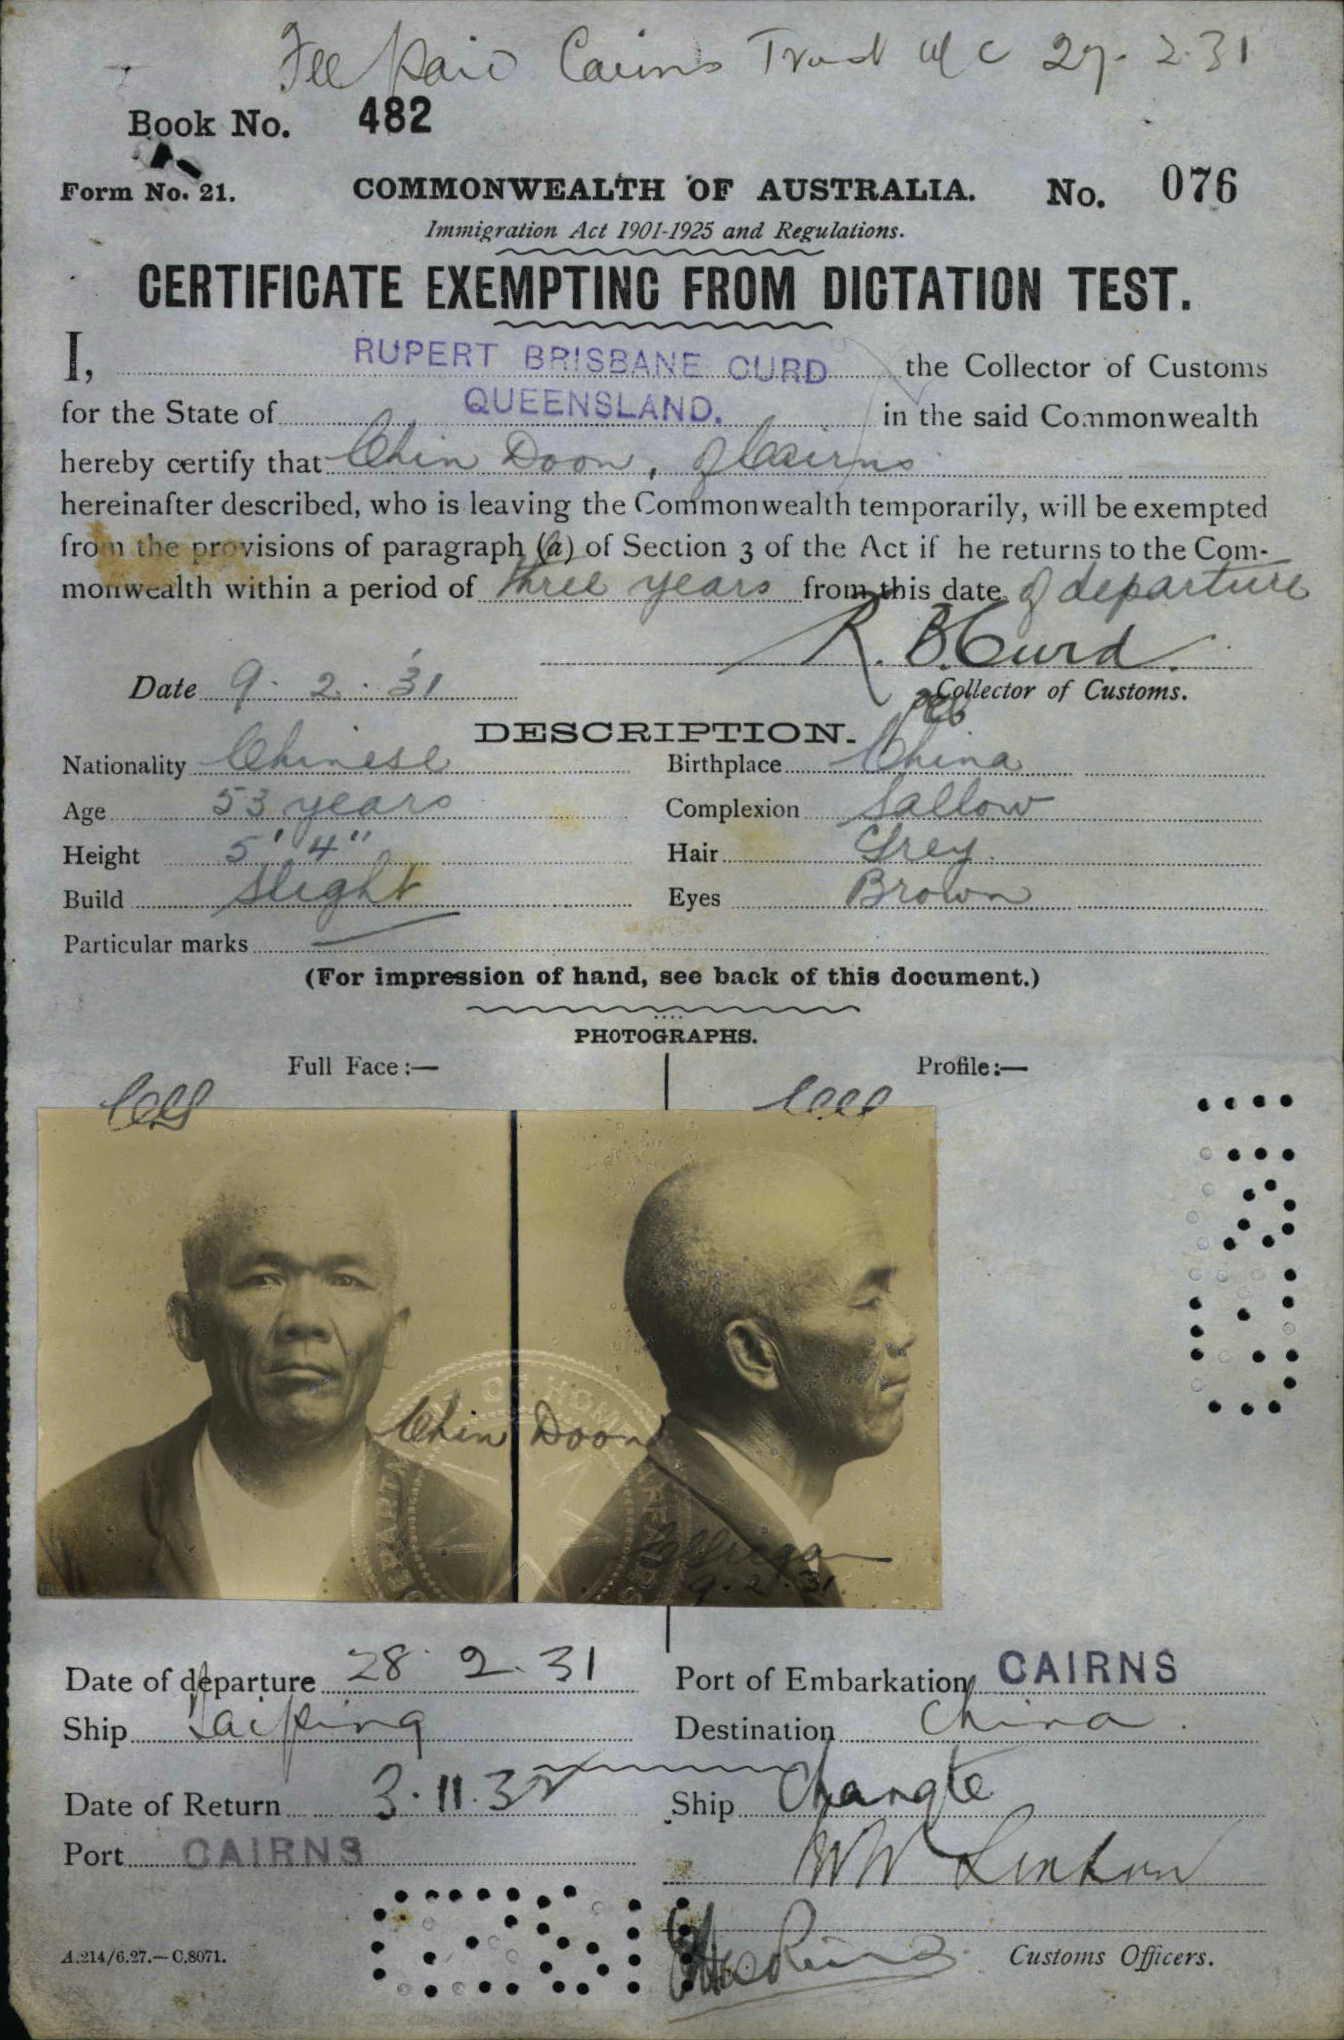 Fee paid Cairns Trust a/c 27-2-31
Book No. 482
Form No. 21. COMMONWEALTH OF AUSTRALIA. No. 076
Immigration Act 1901-1925 and Regulations.
CERTIFICATE EXEMPTING FROM DICTATION TEST.
I, RUPERT BRISBANE CURD the Collector of Customs
for the State of QUEENSLAND. in the said Commonwealth
hereby certify that Chin Doon, of Cairns
hereinafter described, who is leaving the Commonwealth temporarily, will be exempted
from the provisions of paragraph (a) of Section 3 of the Act if he returns to the Com-
monwealth within a period of three years from this date of departure
R. B. Curd.
Date 9. 2. 31 Collector of Customs.
DESCRIPTION.
Nationality Chinese Birthplace China
Age 53 years Complexion Sallow
Height 5' 4" Hair Grey.
Build Slight Eyes Brown
Particular marks
(For impression of hand, see back of this document.)
PHOTOGRAPHS.
Full Face:— Profile:—
Chin Doon
9. 2. 31
Date of departure 28. 2. 31 Port of Embarkation CAIRNS
Ship Taiping Destination China.
Date of Return 3. 11. 32 Ship Changte
Port CAIRNS
Customs Officers.
A.214/6.27.—C.8071.